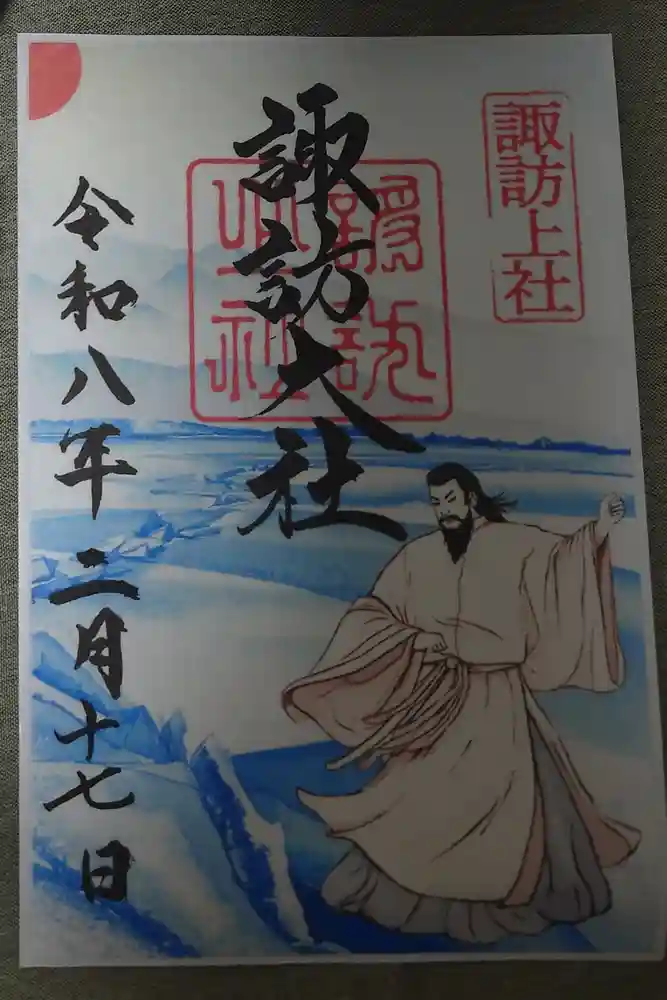 諏訪上社
諏訪大社
諏訪
大社
令和八年二月十七日